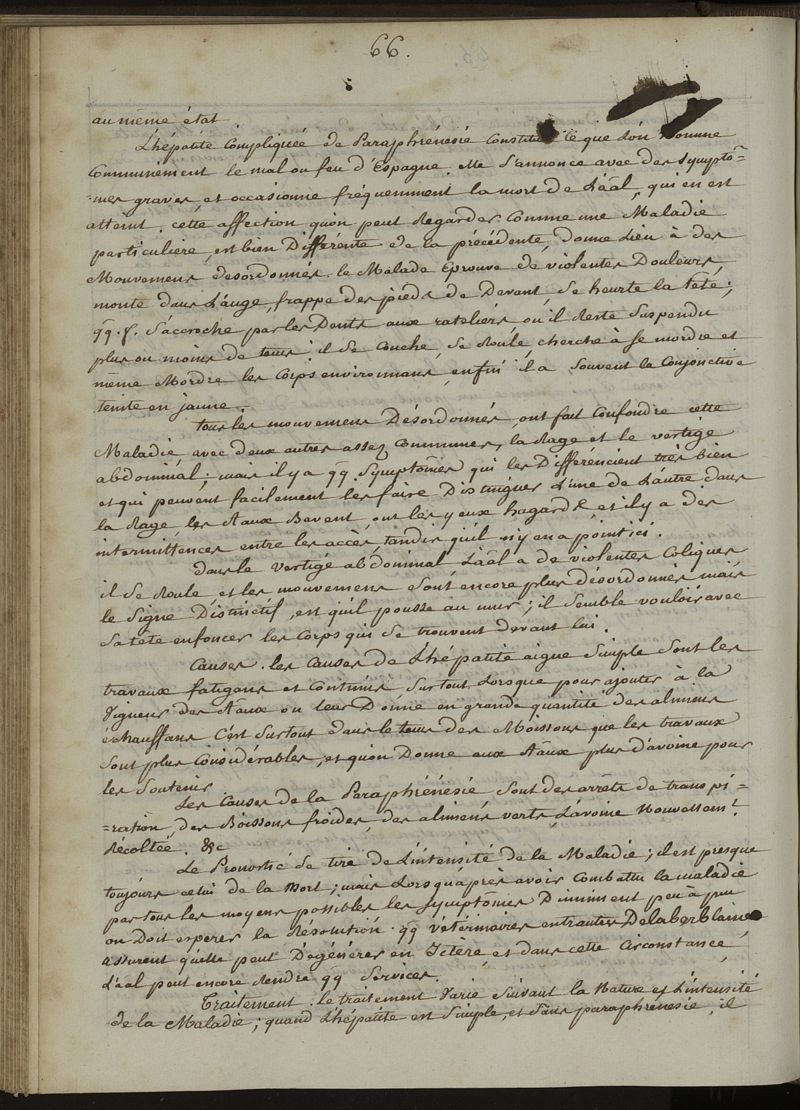 66.
au même état.
L'hépatite Compliquée de Paraphrénésie Constitue ce que l'on Nomme
Communément le mal ou feu d'Espagne. Elle S'annonce avec des Symptô=
=mes graves, et occasionne fréquemment la mort de L'aâl, qui en est
atteint. cette affection qu'on peut Regarder Comme une Maladie
particulière, est bien Différente de la précédente, donne Lieu à des
Mouvemens desordonnés. le Malade Eprouve de violentes Douleurs
monte dans L'auge, frappe des pieds de Devant Se heurte la tete;
qq. f. S'acroche par les Dents aux rateliers où il Reste Suspendu
plus ou moins de tems; il Se Couche, Se Roule, cherche à Se mordre et
même Mordre les Corps environnans, enfin il a Souvent la Conjonctive
teinte en jaune.
Tous les mouvemens Désordonnés, ont fait Confondre cette
Maladie avec deux autres assez Communes, la Rage et le vertige
abdominal; mais il y a qq. Symptômes qui les Différencient très bien
et qui peuvent facilement les faire Distinguer L'une de L'autre. dans
la Rage, les Aaux Bavent, ont les yeux hagards et il y a des
intermittences entre les accès, tandis qu'il n'y en a point ici.
Dans le vertige abdominal L'aâl a de violentes Coliques
il Se Roule et les mouvemens Sont encore plus Désordonnés mais
le Signe Distinctif, est qu'il pousse au mur; il Semble vouloir avec
Sa tete enfoncer les Corps qui Se trouvent Devant lui.
Causes. les Causes de L'hépatite aigue Simple Sont les
travaux fatigans et Continus, Surtout Lorsque pour ajouter à la
Vigueur des Aaux on leur Donne en grande quantité des alimens
échauffans C'est Surtout dans le tems des Moissons que les travaux
Sont plus Considérables, et qu'on Donne aux Aaux plus d'avoine pour
les Soutenir
Les Causes de la Paraphrénésie Sont des arrêts de transpi=
=ration, des Boissons froides, des alimens verts, L'avoine Nouvellemt.
Récoltée. &c
Le Pronostic Se tire de L'intensité de la Maladie; il est presque
toujours celui de la Mort; mais Lorsqu'après avoir Combattu la maladie
par tous les moyens possibles les Symptomes Diminuent peu à peu
on Doit esperer la Résolution. qq vétérinaires entrautres Delaberblaine
assurent quelle peut Dégénérer en Ictère, et dans cette Circonstance,
L'aal peut encore Rendre qq Services.
Traitement. le traitement Varie Suivant la Nature et L'intensité
de la Maladie; quand L'hépatite est Simple, et Sans paraphrénésie, il